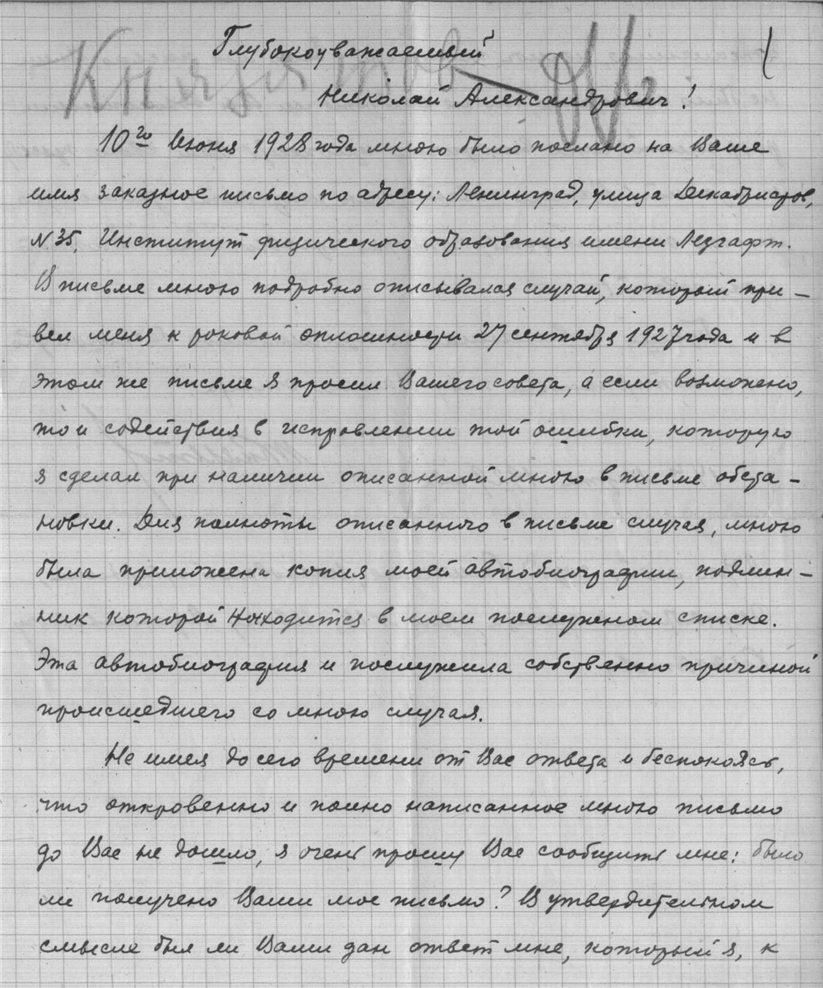 Глубокоуважаемый
Николай Александрович!
10го Июня 1928 года мною было послано на Ваше
имя заказное письмо по адресу: Ленинград, улица Декабристов,
№35, Институт физического образования имени Лезгафт.
В письме мною подробно описывался случай, который при-
вел меня к роковой оплошности 27 сентября 1927 года и в
этом же письме я просил Вашего совета, а если возможно,
то и содействия в исправлении той ошибки, которую
я сделал при наличии описанной мною в письме обста-
новки. Для полноты описанного в письме случая, мною
была приложена копия моей автобиографии, подлин-
ник которой находится в моем послужном списке.
Эта автобиография и послужила собственно причиной
происшедшего со мною случая.
Не имея до сего времени от Вас ответа и беспокоясь,
что откровенно и полно написанное мною письмо
до Вас не дошло, я очень прошу Вас сообщить мне: было
ли получено Вами мое письмо? В утвердительном
смысле был ли Вами дан ответ мне, который я, к